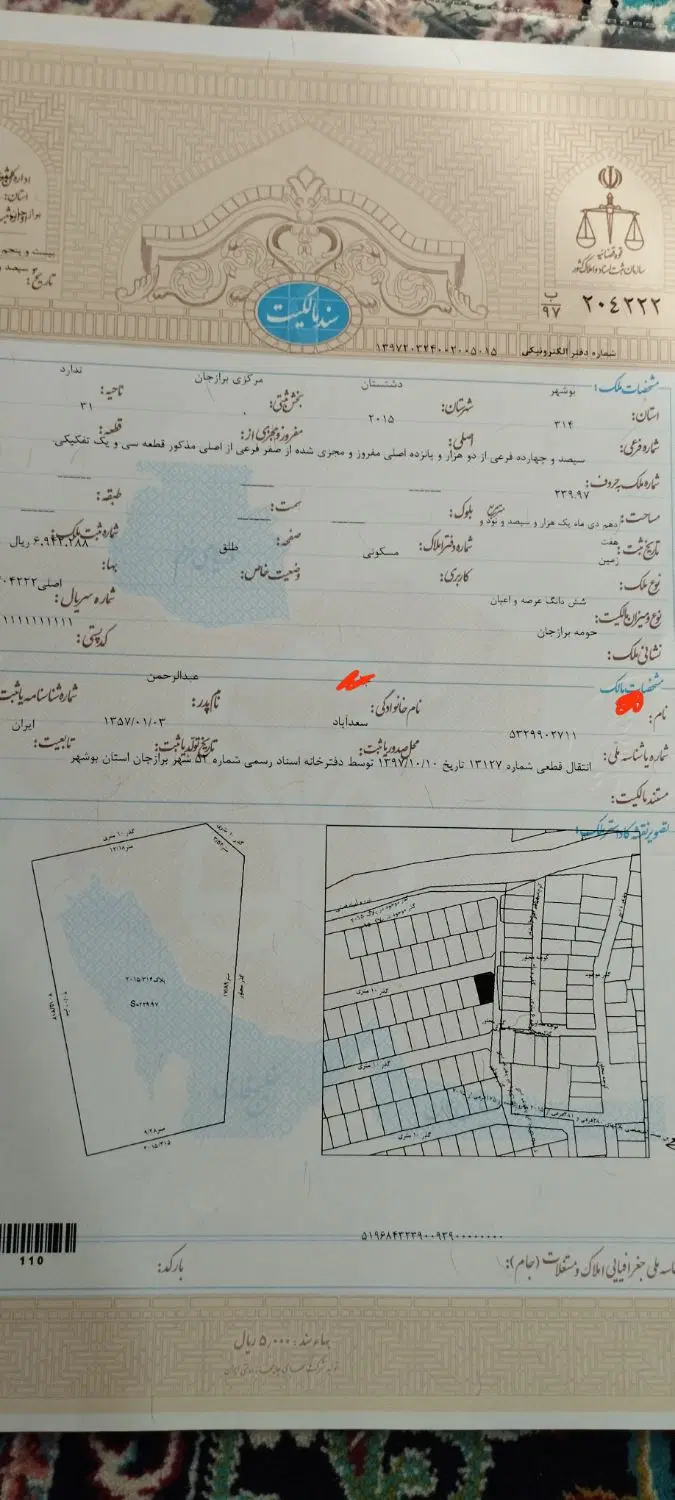 قوه قضائیه
سازمان ثبت اسناد و املاک کشور
۲۰۴۲۲۲ ب ۹۷
سند مالکیت
شماره دفتر الکترونیکی: ۱۳۹۷۲۰۳۲۴۰۰۲۰۰۵۰۱۵
مشخصات ملک:
استان: بوشهر شهرستان: دشتستان بخش ثبتی: مرکزی برازجان ناحیه: ندارد
شماره فرعی: ۳۱۴ اصلی: ۲۰۱۵ مفروز و مجزی از: ۰ قطعه: ۳۱
شماره ملک به حروف: سیصد و چهارده فرعی از دو هزار و پانزده اصلی مفروز و مجزی شده از صفر فرعی از اصلی مذکور قطعه سی و یک تفکیکی.
مساحت: ۲۳۹.۹۷ مترمربع بلوک: سمت: طبقه:
تاریخ ثبت: دهم دی ماه یک هزار و سیصد و نود و هفت شماره دفتر املاک: صفحه: شماره ثبت ملک:
نوع ملک: زمین کاربری: مسکونی وضعیت خاص: طلق بها: ۶,۹۴۲,۲۸۸ ریال
نوع و میزان مالکیت: شش دانگ عرصه و اعیان شماره سریال: اصلی
نشانی ملک: حومه برازجان کدپستی: ۱۱۱۱۱۱۱۱۱۱
مشخصات مالک
نام: نام خانوادگی: نام پدر: عبدالرحمن شماره شناسنامه یا ثبت
شماره یا شناسه ملی: ۵۳۲۹۹۰۲۷۱۱ محل صدور یا ثبت: سعدآباد تاریخ تولد یا ثبت: ۱۳۵۷/۰۱/۰۳ تابعیت: ایران
مستند مالکیت: انتقال قطعی شماره ۱۳۱۲۷ تاریخ ۱۳۹۷/۱۰/۱۰ توسط دفترخانه اسناد رسمی شماره ۵۲ شهر برازجان استان بوشهر
تصویر نقشه کاداستر ملک:
گذر ۱۰ متری
پلاک ۲۰۱۵/۳۱۴
S=۲۳۹.۹۷
۲۰۱۵/۳۱۵
گذر ۱۰ متری
گذر ۱۰ متری
گذر ۱۰ متری
۵۱۹۶۸۴۳۲۳۹۰۰۹۳۹۰۰۰۰۰۰۰۰
ملی جغرافیایی املاک و مستغلات (جام):
بارکد:
110
بهاء سند: ۵,۰۰۰ ریال